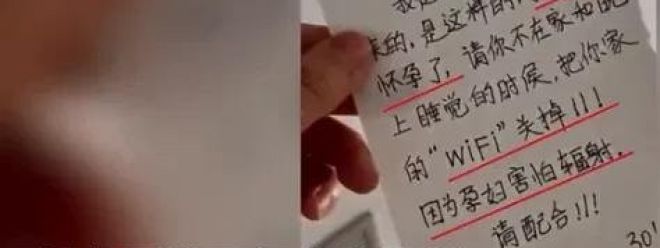 的，是这样的
怀孕了，请你不在家和
上睡觉的时候，把你家
的“WiFi”关掉！！！
因为孕妇害怕辐射，
请配合！！！
30